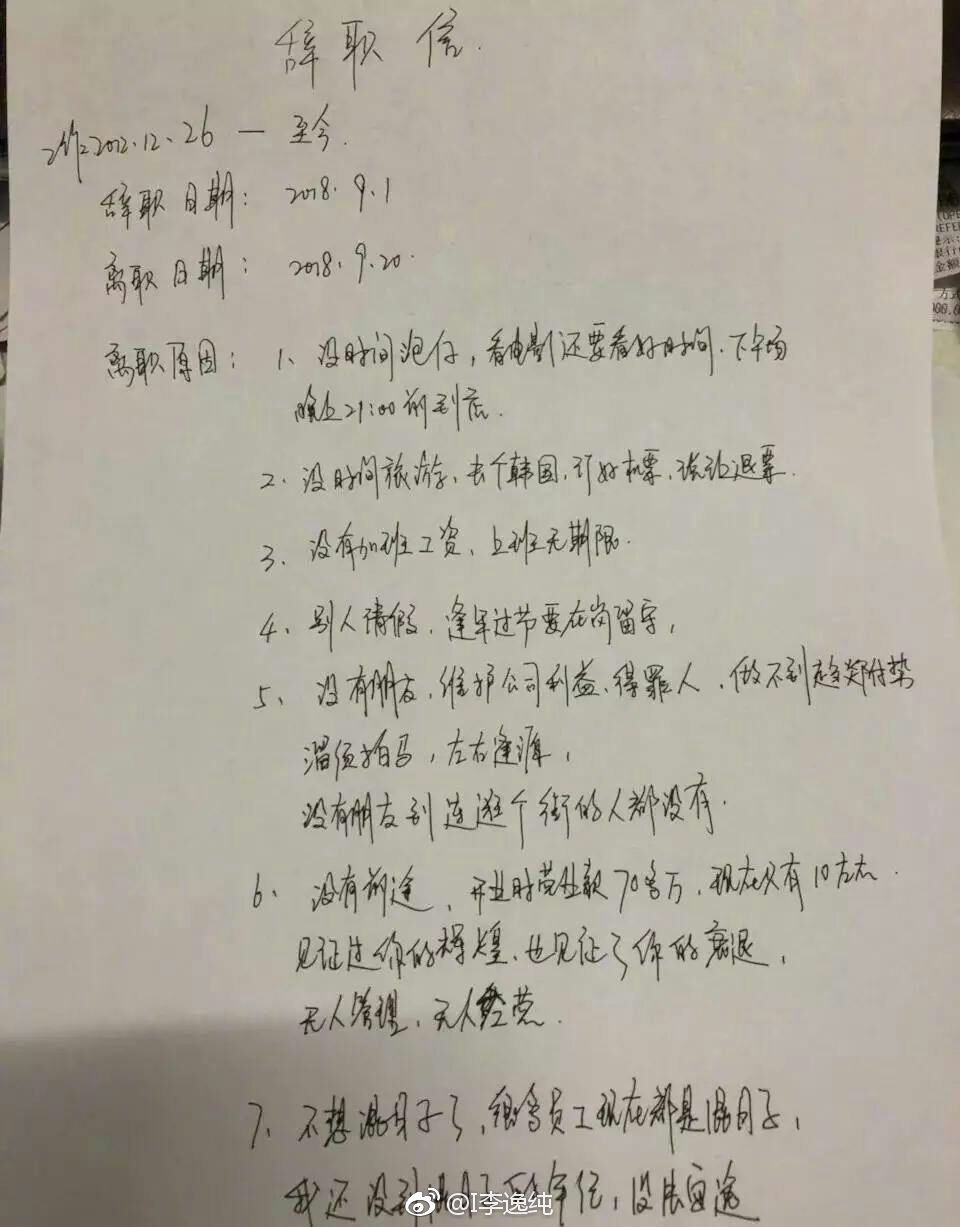 辞职信.
工作2012.12.26 — 至今.
辞职日期: 2018.9.1
离职日期: 2018.9.20.
离职原因: 1、没时间泡仔,看电影还要看好时间.下午场
晚上21:00前到店.
2、没时间旅游、去个韩国,订好机票,说让退票.
3、没有加班工资、上班无期限.
4、别人请假、逢年过节要在岗留守,
5、没有朋友、维护公司利益、得罪人,做不到趋炎附势
溜须拍马,左右逢源,
没有朋友到连逛个街的人都没有.
6、没有前途、开业时营业额70多万,现在只有10左右.
见证过你的辉煌、也见证了你的衰退,
无人管理、无人经营.
7、不想混日子了,很多员工现在都是混日子,
我还没到混日子的年纪,没法
@I李逸纯